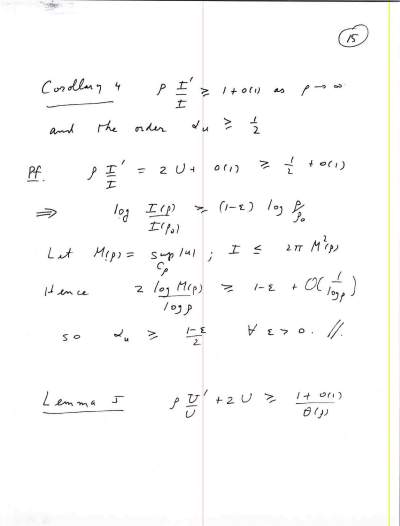 15
Corollary 4 ρ I'/I ≥ 1 + o(1) as ρ → ∞
and the order α_u ≥ 1/2
Pf. ρ I'/I = 2U + o(1) ≥ 1/2 + o(1)
⇒ log I(ρ)/I(ρ₀) ≥ (1-ε) log ρ/ρ₀
Let M(ρ) = sup_{C_ρ} |u| ; I ≤ 2π M²(ρ)
Hence 2 log M(ρ) / log ρ ≥ 1-ε + O(1/log ρ)
so α_u ≥ (1-ε)/2 ∀ ε > 0. //.
Lemma 5 ρ U'/U + 2U ≥ (1 + o(1))/θ(ρ)